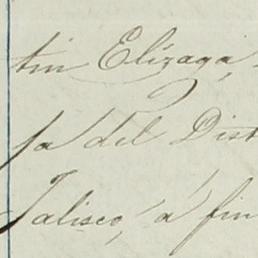 tin Elízaga,
sa del Dist
Jalisco, á fin